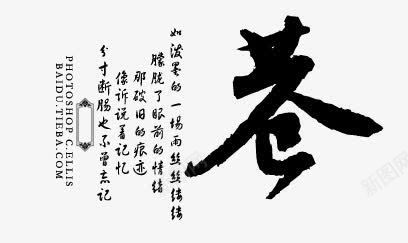 巷
如泼墨的一场雨丝丝缕缕
朦胧了眼前的情绪
那破旧的痕迹
像诉说着记忆
分寸断肠也不曾忘记
PHOTOSHOP C.ELLIS
BAIDU.TIEBA.COM
新图网